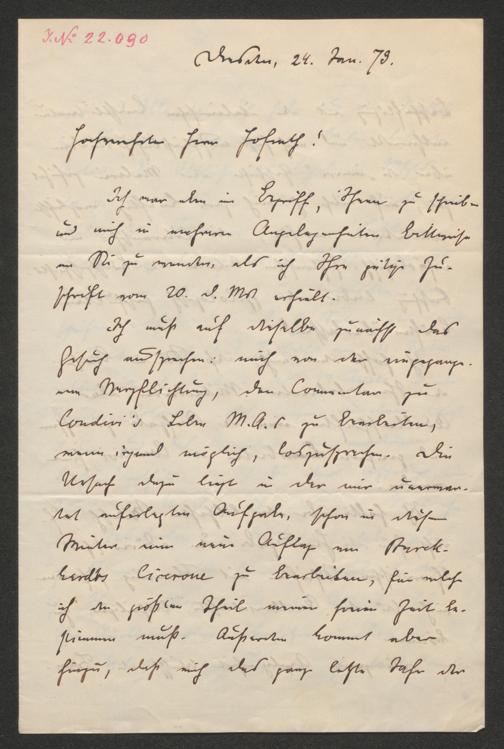 J.N. 22.090
Dresden, 24. Jan. 73.
Hochverehrter Herr Hofrath!
Ich war eben im Begriff, Ihnen zu schreiben
und mich in mehreren Angelegenheiten bittweise
an Sie zu wenden, als ich Ihre gütige Zu-
schrift vom 20. d. Mts erhielt.
Ich muß auf dieselbe zunächst das
Gesuch aussprechen: mich von der eingegange-
nen Verpflichtung, den Commentar zu
Condivi's Leben M.A.s zu bearbeiten,
wenn irgend möglich, loszusprechen. Die
Ursach dazu liegt in der mir unerwar-
tet auferlegten Aufgabe, schon in diesem
Winter eine neue Auflage von Burck-
hardts Cicerone zu bearbeiten, für welche
ich den größten Theil meiner freien Zeit be-
stimmen muß. Außerdem kommt aber
hinzu, daß mich das ganze letzte Jahr der